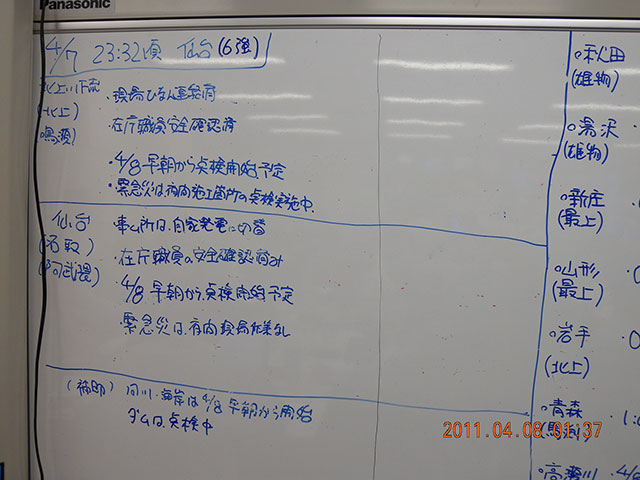 Panasonic
4/7 23:32頃 仙台(6強)
北上川下流
(北上)
(鳴瀬)
・現場ひなん連絡済
・在庁職員安全確認済
・4/8早朝から点検開始予定
・緊急災は、夜間施工箇所の点検実施中.
仙台
(名取)
(阿武隈)
事ム所は、自家発電に切替
・在庁職員の安全確認済み
4/8 早朝から点検開始予定
緊急災は、夜間現場作業なし
(補助) 河川・海岸は4/8 早朝から開始
ダムは点検中
○秋田
(雄物)
○湯沢
(雄物)
○新庄
(最上)
○山形
(最上)
○岩手
(北上)
○青森
(馬淵)
○高瀬川 4/8
2011.04.08 01:37